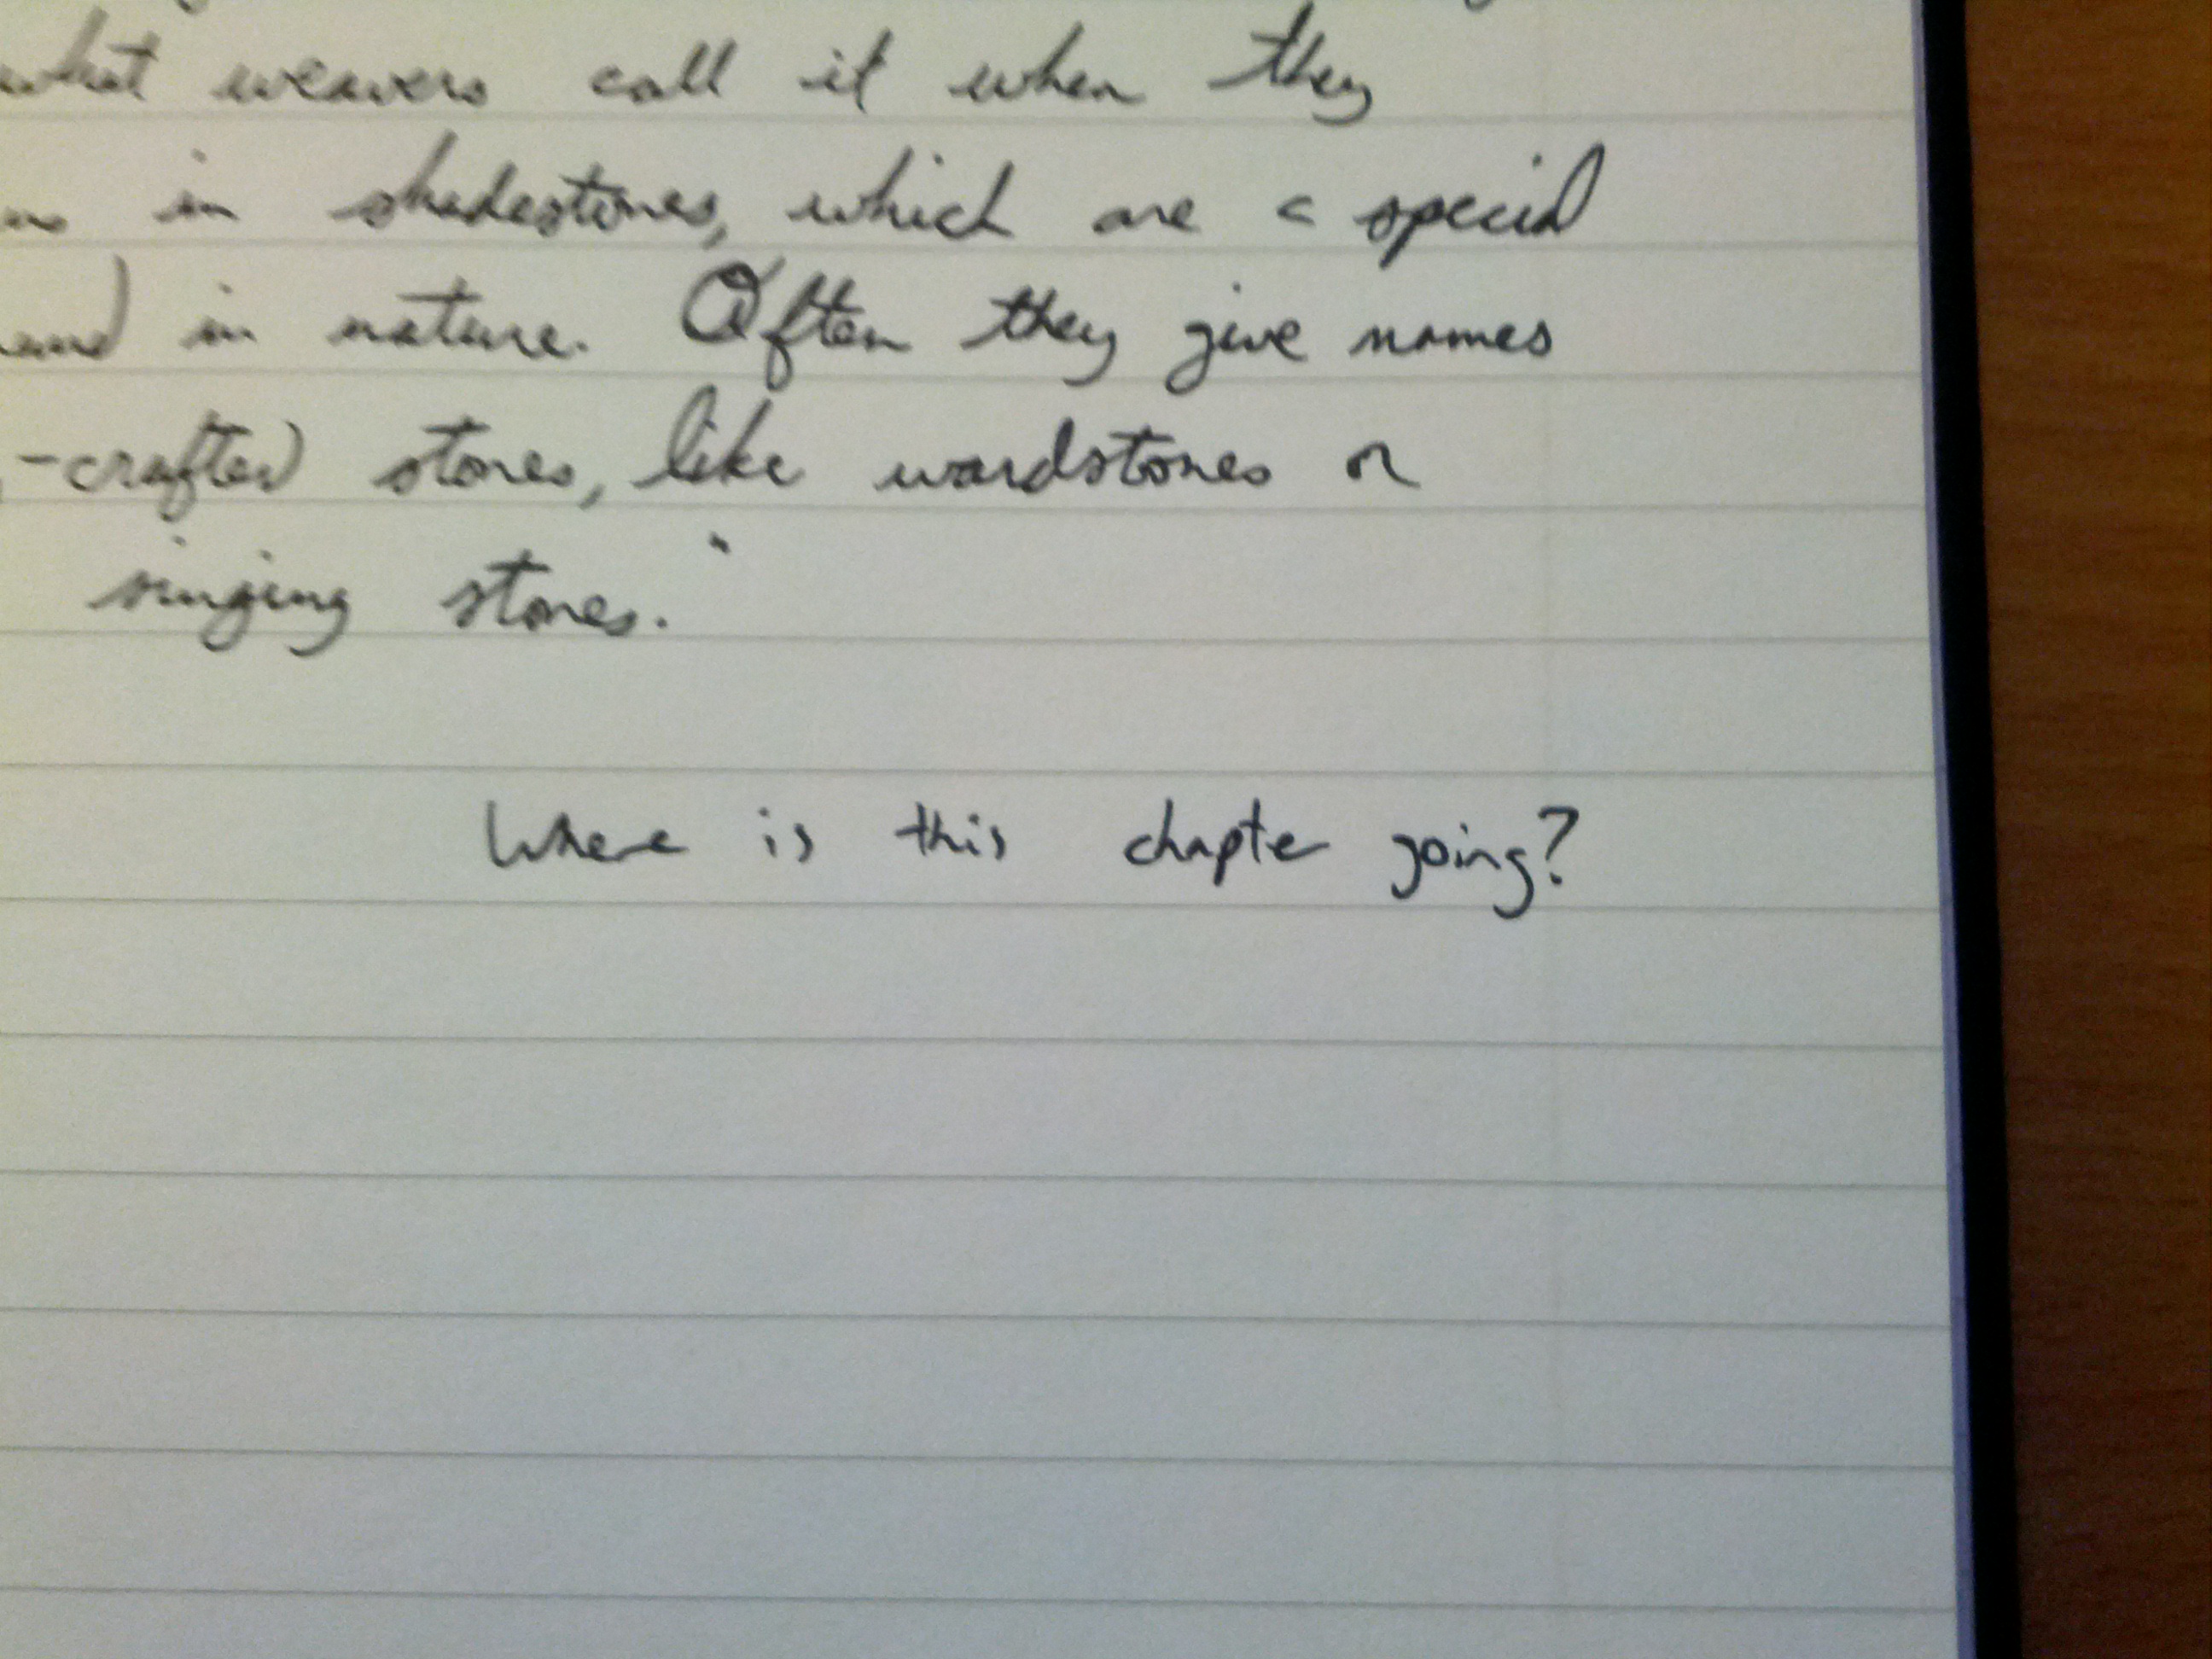 what weavers call it when they
in shadestones, which are a special
in nature. Often they give names
-crafted stones, like wardstones or
singing stones."
Where is this chapter going?